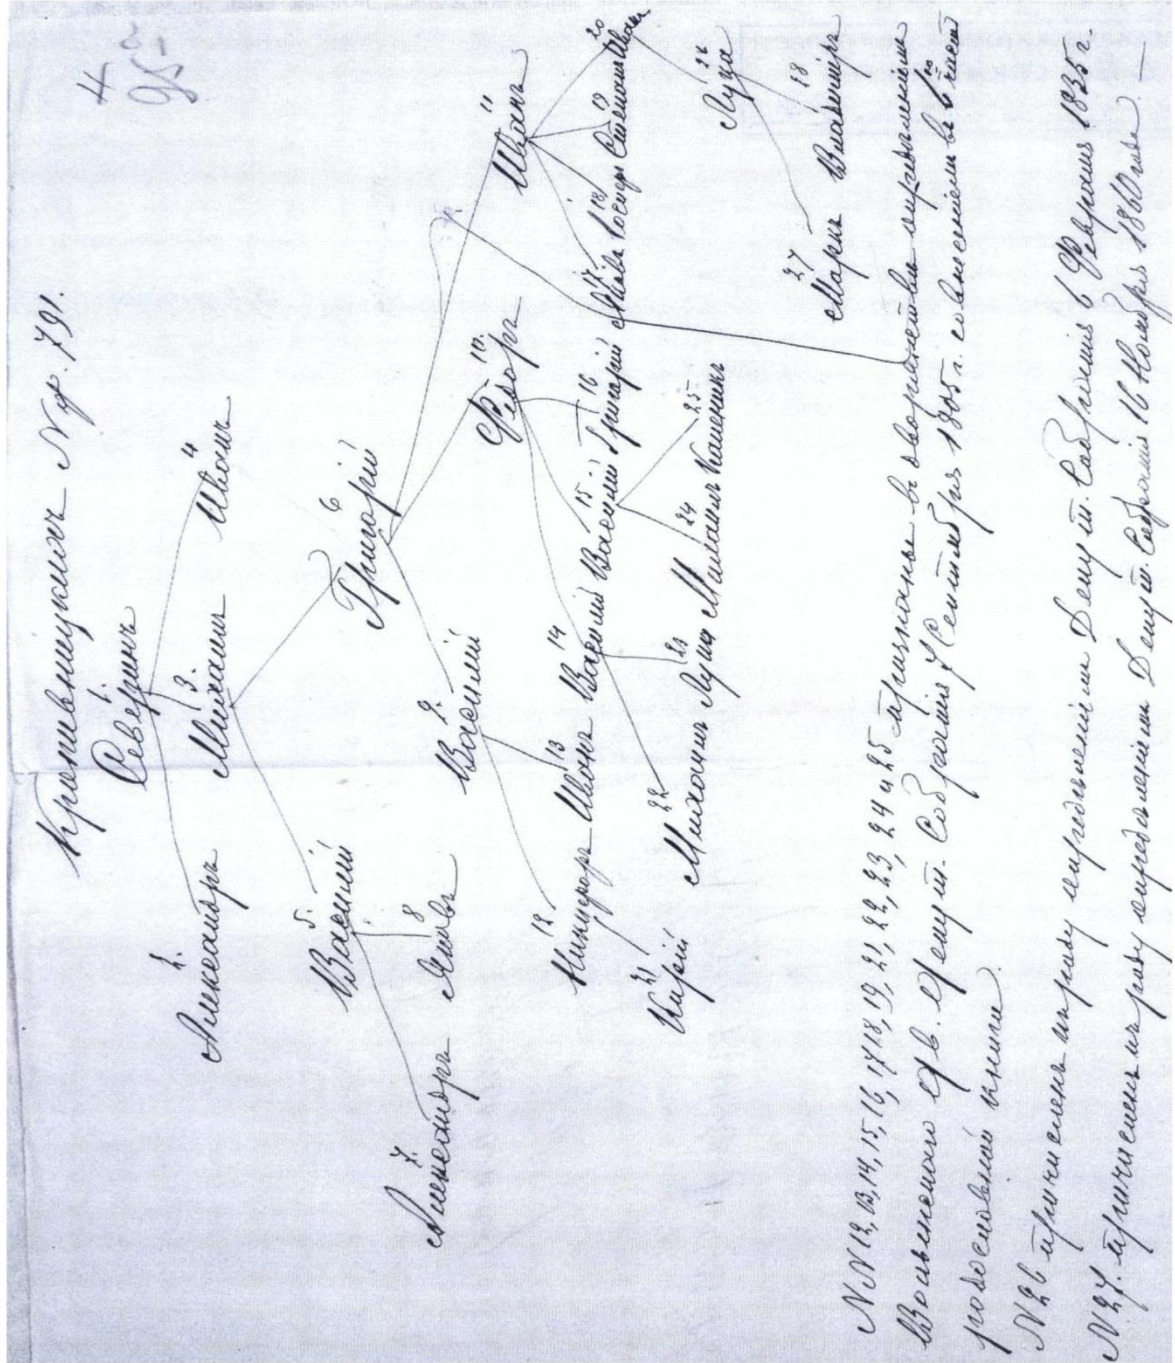 4
Кропивницкихъ № 791
Северинъ
2. Александръ 3 Михаилъ 4 Иванъ
5 Василій 6 Григорій
7. Александръ 8 Яковъ 9 Василій 10. Федоръ 11 Иванъ
12 Никифоръ 13 Иванъ 14 Василій 15 Василій 16 Григорій 17. Яковъ 18 Іосифъ 19 Степанъ 20
21 Кирилъ 22 Михаилъ 23 Лука 24 Михаилъ 25 26 Лука
27 Марія 28 Владиміръ
№№ 12, 13, 14, 15, 16, 17, 18, 19, 21, 22, 23, 24 и 25 признаны въ дворянствѣ опредѣленіемъ
Волынского Дв. Депут. Собранія 7 Сентября г. со внесеніемъ въ 6ю часть
родословной книги
№ 26 причисленъ къ роду опредѣленіемъ Депут. Собранія 6 Февраля 1835 г.
№ 27. причисленъ къ роду опредѣленіемъ Депут. Собранія 16 Ноября 1860 года